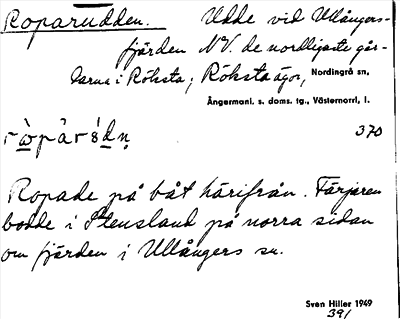 Roparudden. Udde vid Ullångers-
fjärden NV. de nordligaste går-
darna i Röksta; Röksta ägor, Nordingrå sn,
Ångermanl. s. doms. tg., Västernorrl. l.
370
Ropade på båt härifrån. Färjaren
bodde i Stensland på norra sidan
om fjärden i Ullångers sn.
Sven Hiller 1949
391